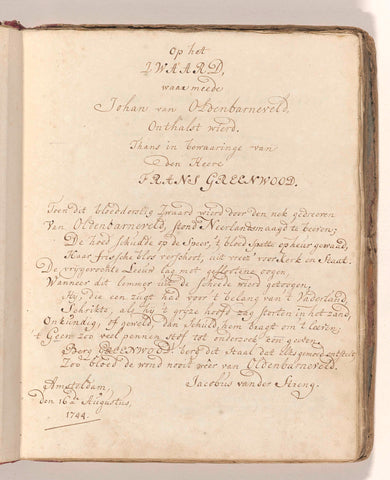 Op het
ZWAARD,
waar meede
Johan van Oldenbarneveld,
Onthalst wierd.
Thans in bewaaringe van
den Heere
FRANS GREENWOOD.
Toen dit bloeddorstig Zwaard wierd door den nek gedreeven
Van Oldenbarneveld, stond Neerlandsmaagd te beeven;
De hoed schudde op de Speer, 't bloed Spatte op haer gewaad,
Haar frissche blos verschoot, uit vrees voor Kerk en Staat.
De vrygevochte Leeuw lag met geslootene oogen,
Wanneer dit lemmer uit de scheede wierd getoogen;
Hy, die een zugt had voor 't belang van 't Vaderland,
Schrikte, als hy 't gryze hoofd zag storten in het zand.
Onkundig, of geweld, dan Schuld, hem bragt om 't leeven,
't Geen zoo veel pennen stof tot onderzoek kon geeven.
Berg GREENWOOD, berg dit Staal dat elks gemoed
Zoo bloed de wond nooit weer van Oldenbarneveld.
Amsteldam,
den 16de Augustus,
1744.
Jacobus vander Streng.